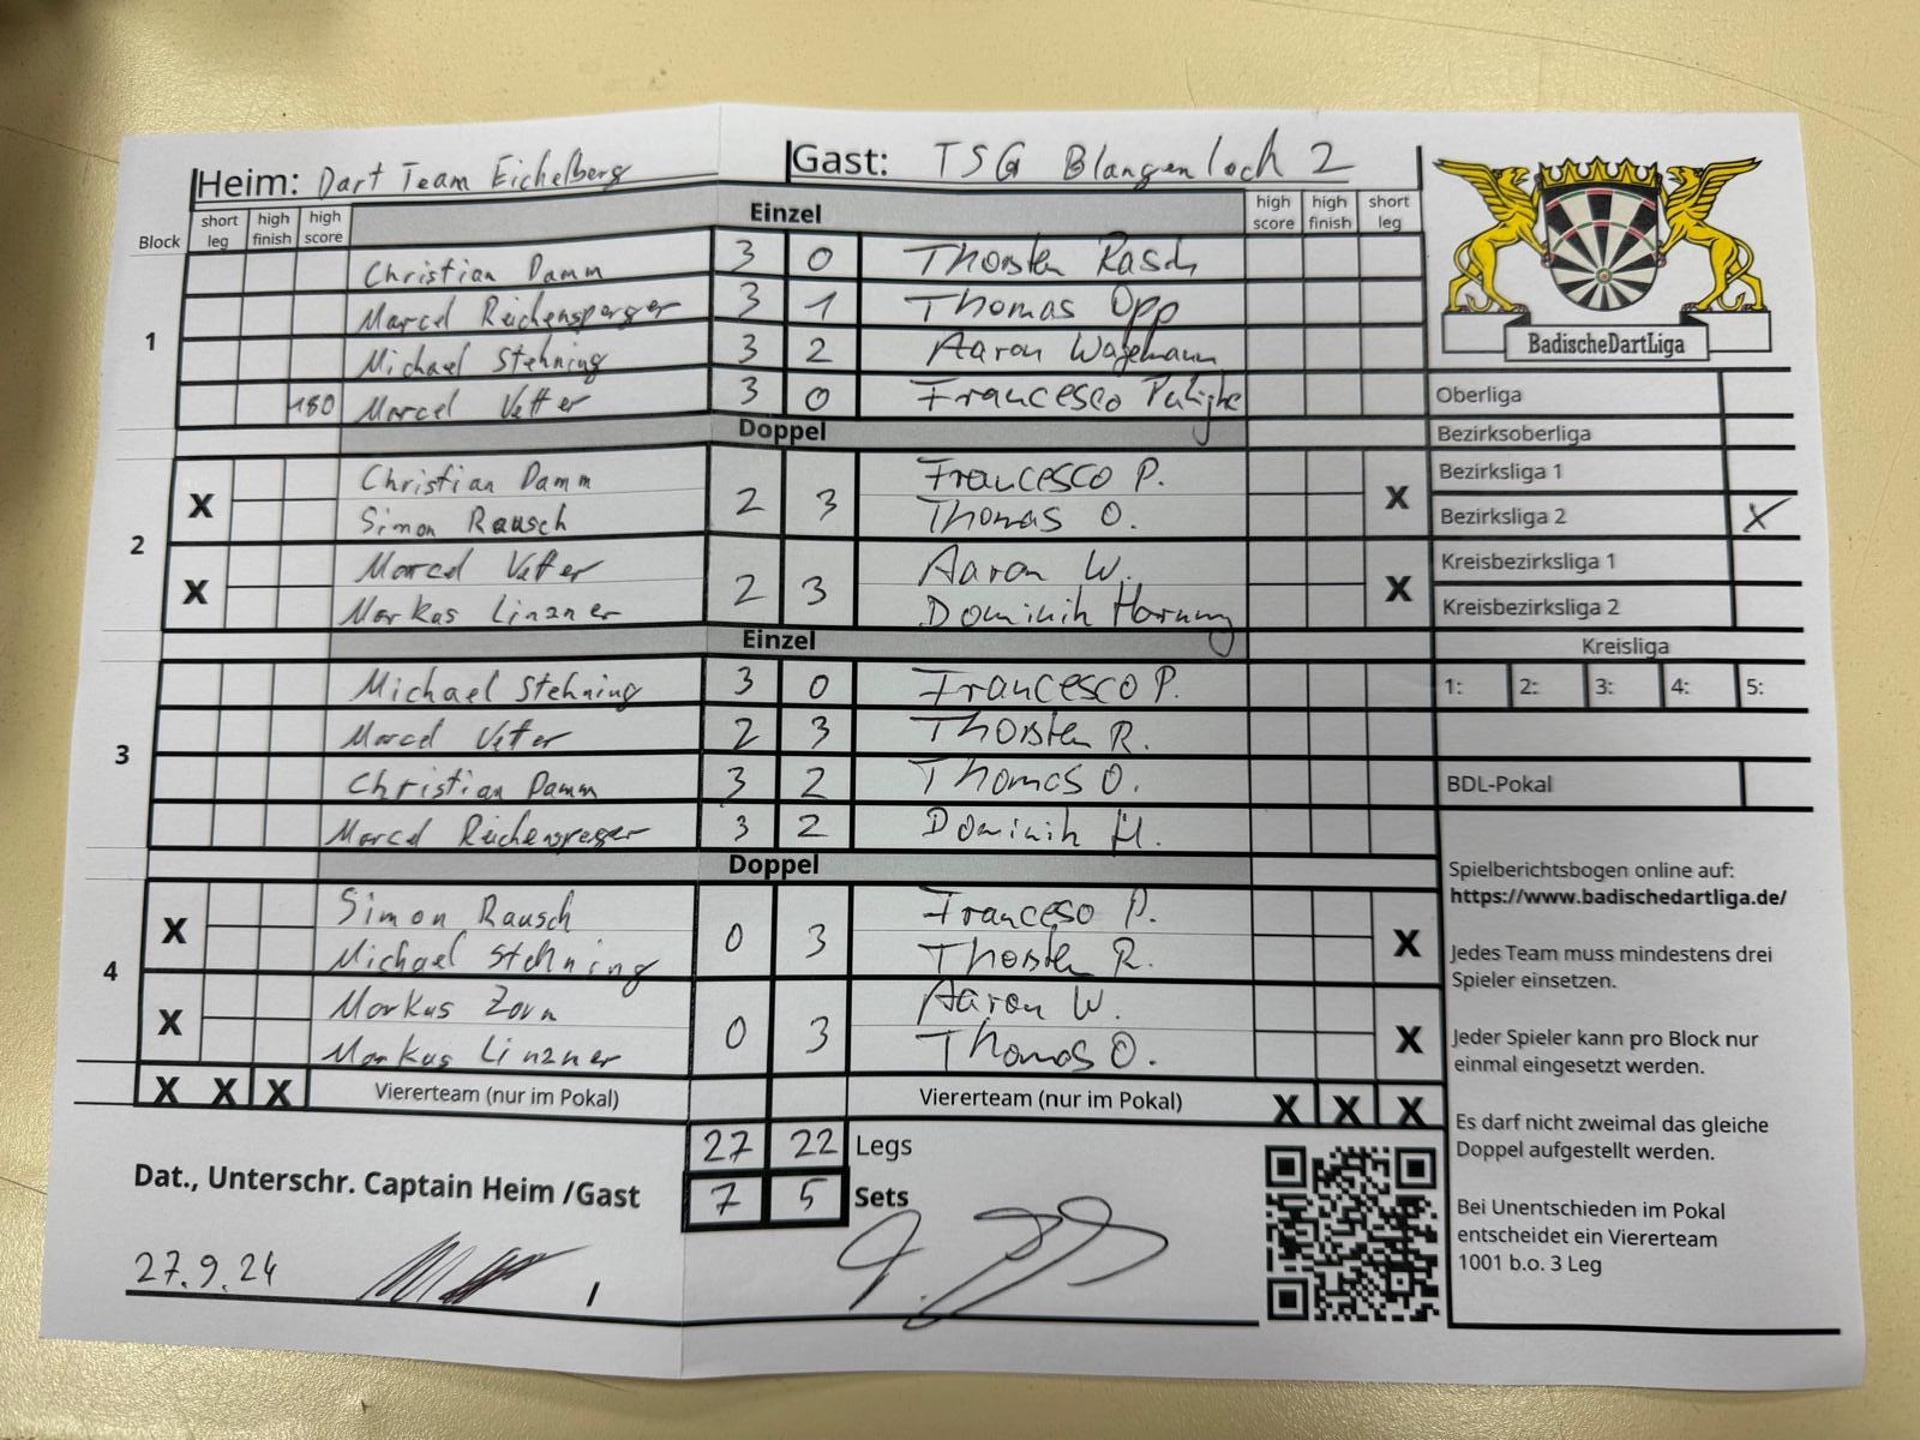 Heim: Dart Team Eichelberg Gast: TSG Blangenloch 2
Block short leg high finish high score Einzel high score high finish short leg
1
Christian Damm 3 0 Thorsten Rasch
Marcel Reichensperger 3 1 Thomas Opp
Michael Stehning 3 2 Aaron Wagemann
180 Marcel Vetter 3 0 Francesco
Doppel
2
X Christian Damm 2 3 Francesco P. X
Simon Rausch Thomas O.
X Marcel Vetter 2 3 Aaron W. X
Markus Linzner Dominik Hornung
Einzel
3
Michael Stehning 3 0 Francesco P.
Marcel Vetter 2 3 Thorsten R.
Christian Damm 3 2 Thomas O.
Marcel 3 2 Dominik H.
Doppel
4
X Simon Rausch 0 3 Franceso P. X
Michael Stehning Thorsten R.
X Markus Zorn 0 3 Aaron W. X
Markus Linzner Thomas O.
X X X Viererteam (nur im Pokal) Viererteam (nur im Pokal) X X X
27 22 Legs
7 5 Sets
Dat., Unterschr. Captain Heim /Gast
27.9.24
BadischeDartLiga
Oberliga
Bezirksoberliga
Bezirksliga 1
Bezirksliga 2 X
Kreisbezirksliga 1
Kreisbezirksliga 2
Kreisliga
1: 2: 3: 4: 5:
BDL-Pokal
Spielberichtsbogen online auf:
https://www.badischedartliga.de/
Jedes Team muss mindestens drei
Spieler einsetzen.
Jeder Spieler kann pro Block nur
einmal eingesetzt werden.
Es darf nicht zweimal das gleiche
Doppel aufgestellt werden.
Bei Unentschieden im Pokal
entscheidet ein Viererteam
1001 b.o. 3 Leg